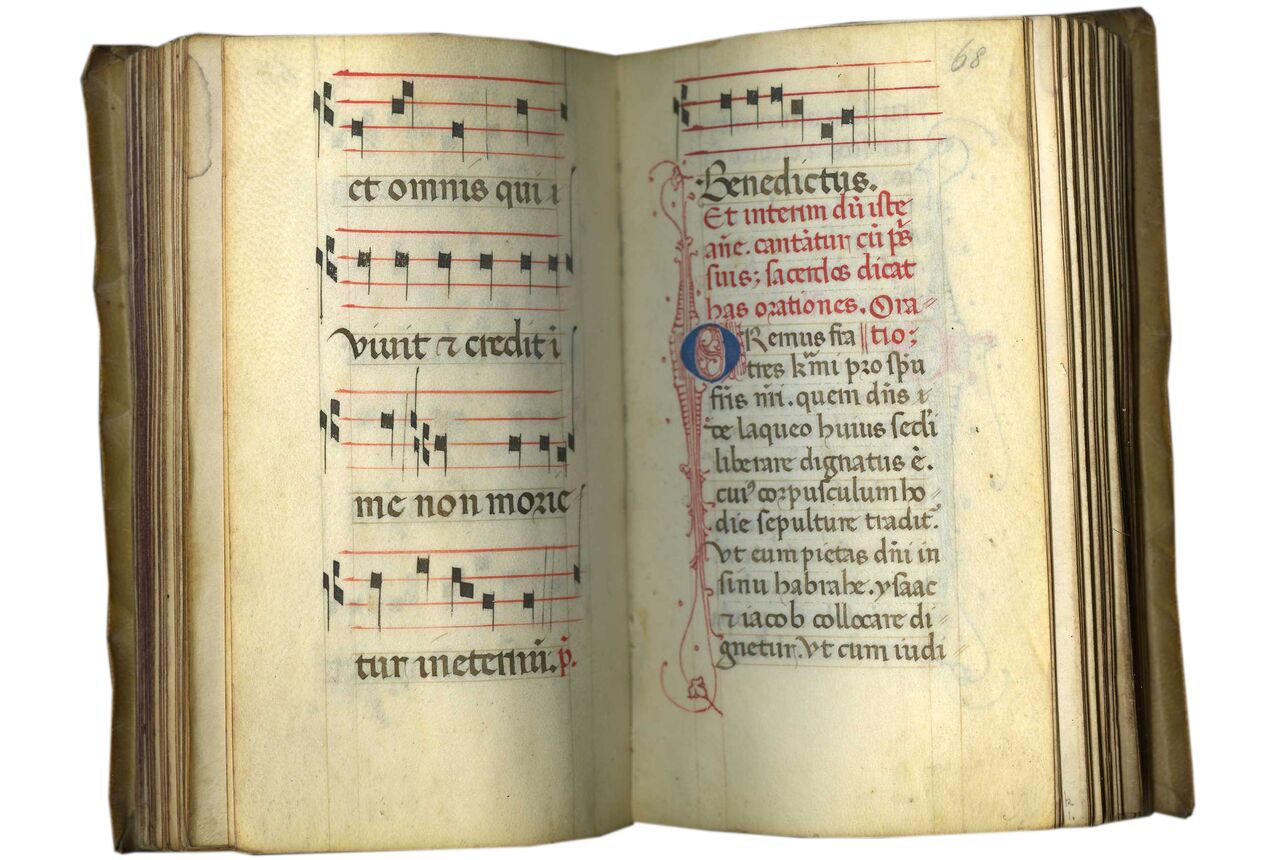 et omnis qui ꝛ
vivit ⁊ credit i
me non morie
tur in eternū. p̄.
68
Benedictus.
Et interim dū iste
añe. cantātur cū p̄s
suis; sacerdos dicat
has orationes. Ora⸗
ORemus fra tio;
tres k̄mi pro sp̄u
fr̄is nr̄i. quem dn̄s ꝛ
de laqueo huius sec̄li
liberare dignatus ē.
cuiꝰ corpusculum ho⸗
die sepulture tradit᷑.
Vt eum pietas dn̄i in
sinu habrahe. ysaac
⁊ iacob collocare di⸗
gnetur. Vt cum iudi